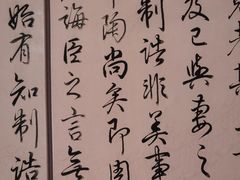 及已與妻之
制誥非美事
陶尚矣即周
誨臣之言無
始有知制誥